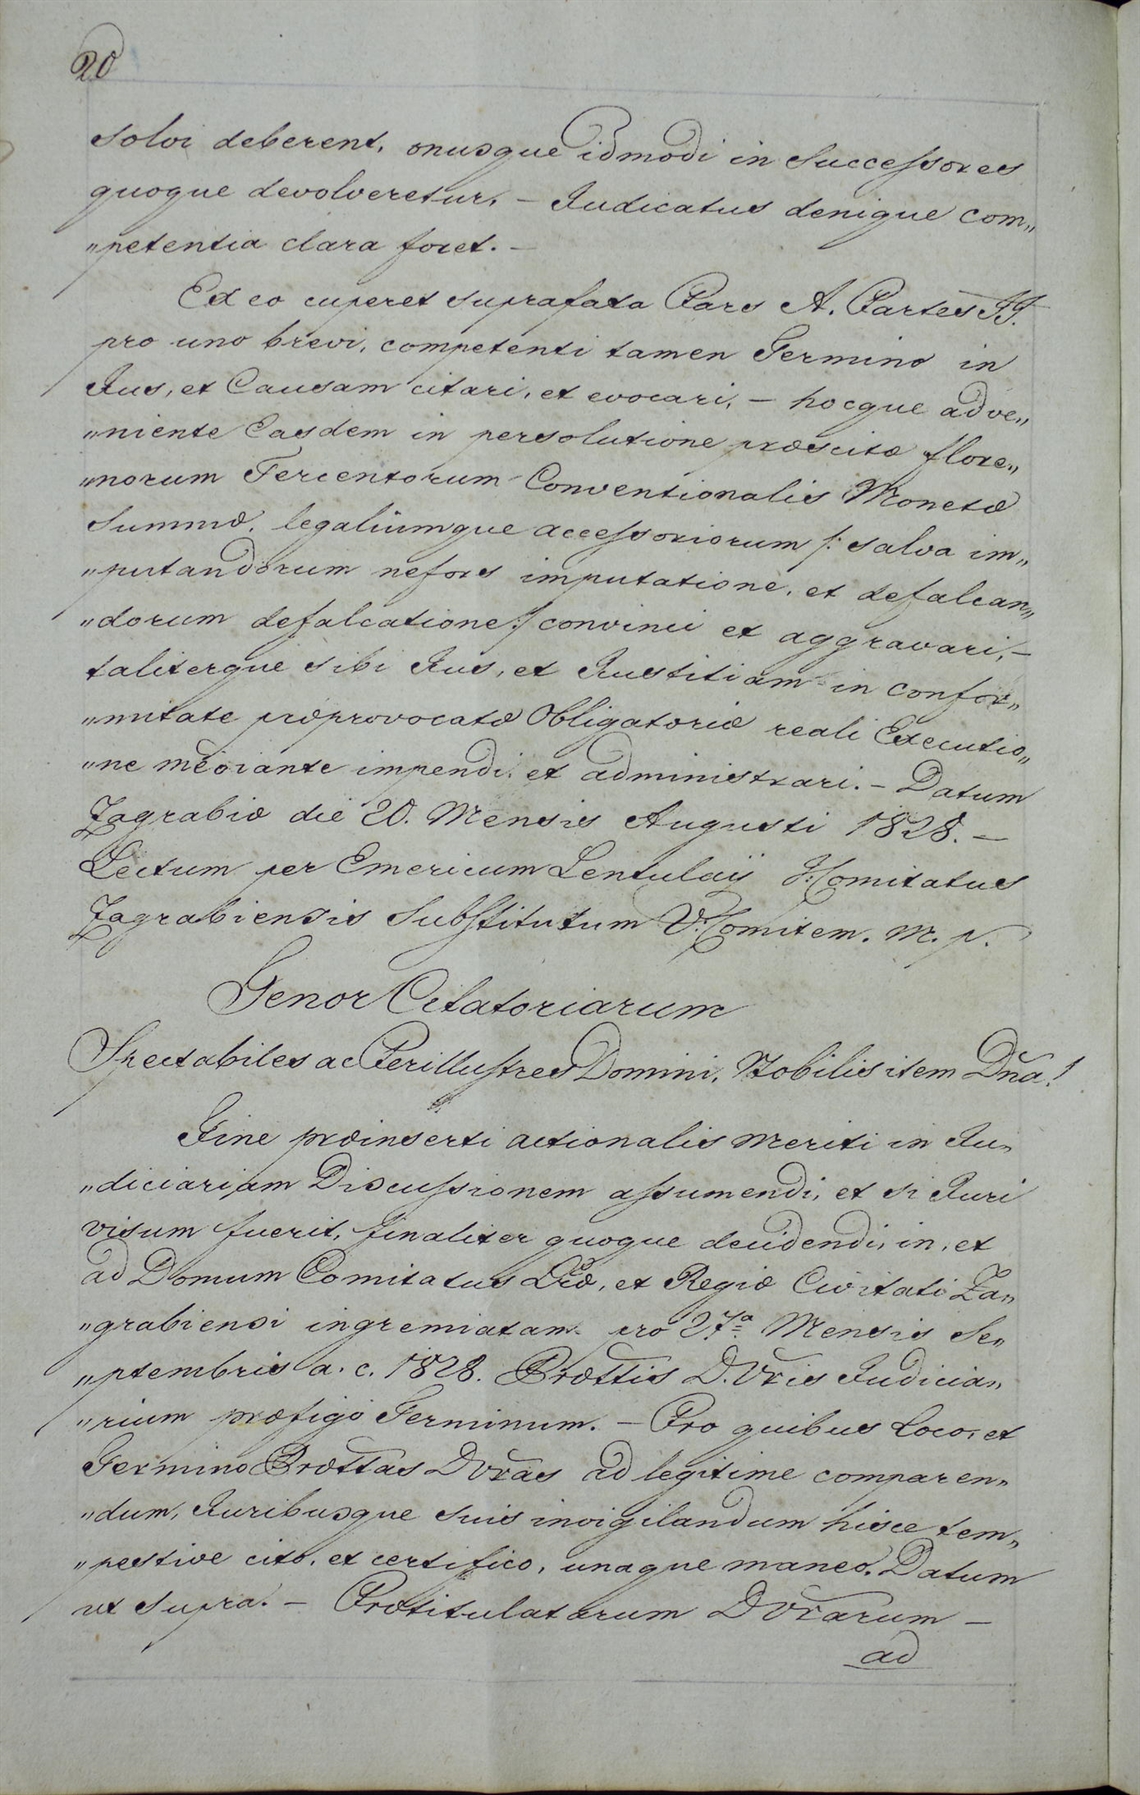 20
solvi deberent, onusque idmodi in Successores
quoque devolveretur, – Judicatus denique com„
„petentia clara foret. –
Ex eo cuperet suprafata Pars A. Partes II.
pro uno brevi, competenti tamen Termino in
Jus, et Causam citari, et evocari, – hocque adve„
„niente Easdem in persolutione præscitæ flore„
„norum Tercentorum Conventionalis Monetæ
Summæ, legaliumque accessoriorum /: salva im„
„putandorum nefors imputatione, et defalcan„
„dorum defalcatione :/ convinci et aggravari, –
taliterque sibi Jus, et Justitiam in confor„
„mitate præprovocatæ Obligatoriæ reali Executio„
„ne mediante impendi, et administrari. – Datum
Zagrabiæ die 20. Mensis Augusti 1828. –
Lectum per Emericum Lentulaij I: Comitatus
Zagrabiensis Substitutum V: Comitem. m. p.
Tenor Citatoriarum
Spectabiles ac Perillustres Domini, Nobilis item Dña!
Fine præinserti actionalis meriti in Ju„
„diciariam Discussionem assumendi, et si Juri
visum fuerit, finaliter quoque decidendi, in, et
ad Domum Comitatus Lræ, et Regiæ Civitati Za„
„grabiensi ingremiatam pro 27ª Mensis Se„
„ptembris a. c. 1828. Prættis D. Vris Judicia„
„rium præfigo Terminum. – Pro quibus Loco, et
Termino Prættas DVras ad legitime comparen„
„dum, Juribusque suis invigilandum hisce tem„
„pestive cito, et certifico, unaque maneo. Datum
ut supra. – Prætitulatarum DVrarum –
ad